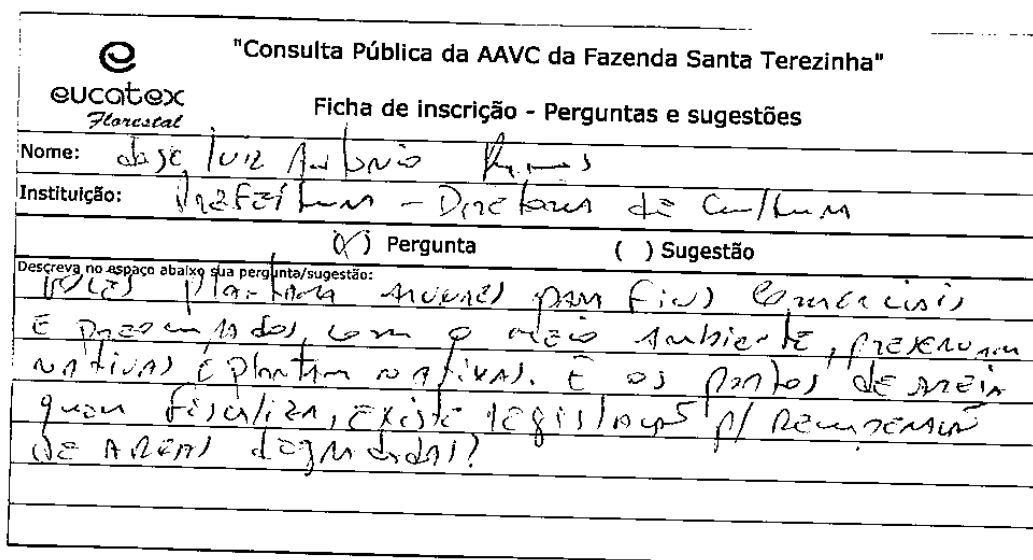 "Consulta Pública da AAVC da Fazenda Santa Terezinha"
eucatex
Florestal
Ficha de inscrição - Perguntas e sugestões
Nome: José Luiz Antonio
Instituição: Prefeitura - Diretoria de Cultura
(X) Pergunta ( ) Sugestão
Descreva no espaço abaixo sua pergunta/sugestão:
Vocês plantam árvores para fins comerciais
E preocupados, com o meio Ambiente, preservam
nativas E plantam nativas. E os portos de areia
quem fiscaliza, Existe legislação p/ recuperação
DE AREAS degradadas?